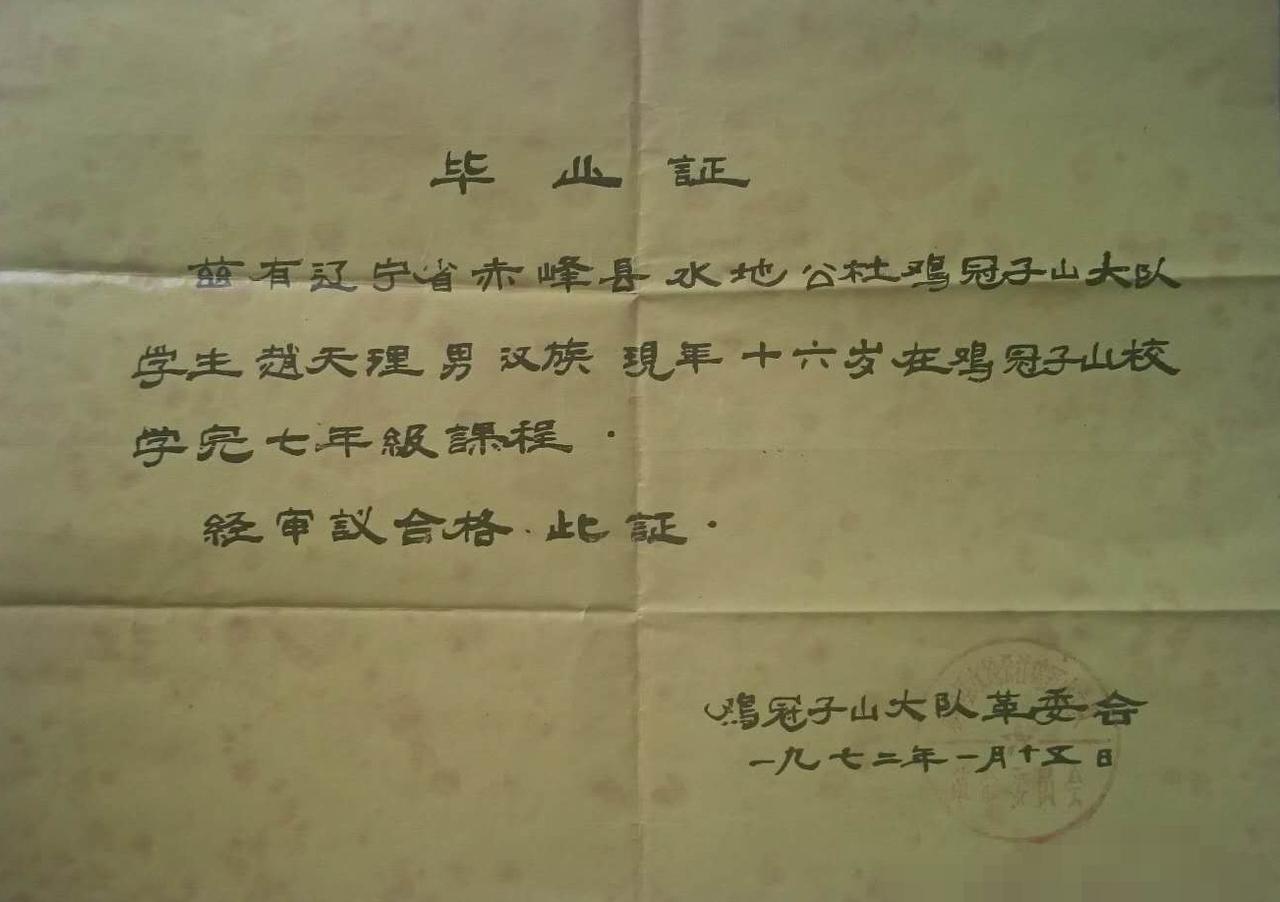 毕业証
兹有辽宁省赤峰县水地公社鸡冠子山大队
学生趙天理男汉族現年十六岁在鸡冠子山校
学完七年級課程.
经审议合格.此証.
鸡冠子山大队革委会
一九七二年一月十五日